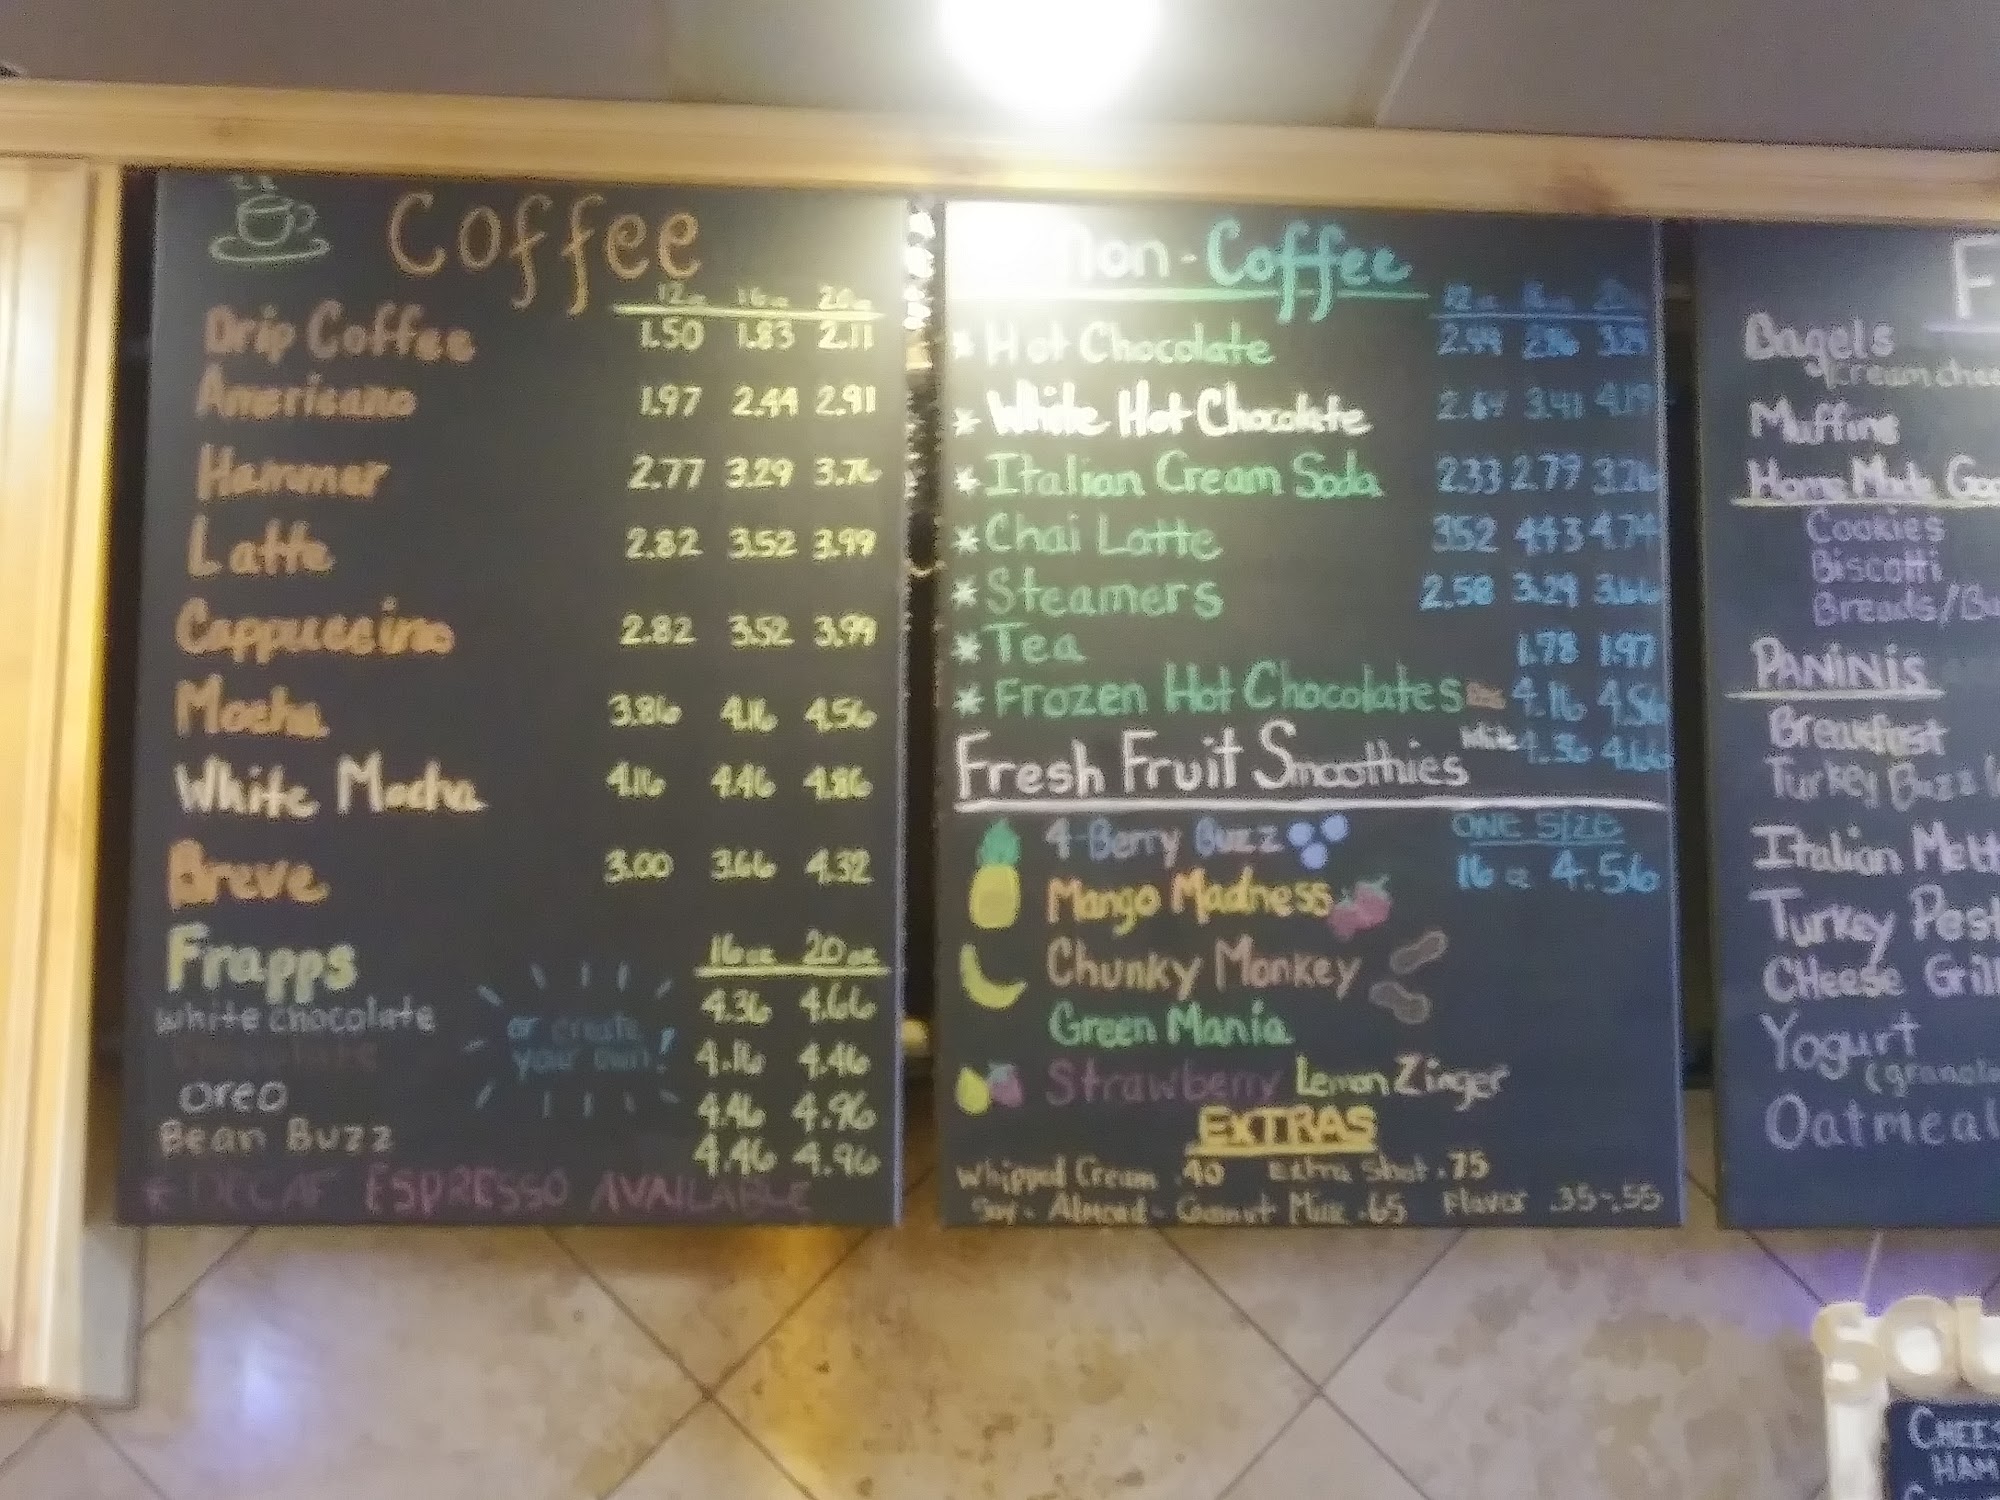 Coffee
12oz 16oz 20oz
Drip Coffee 1.50 1.83 2.11
Americano 1.97 2.44 2.91
Hammer 2.77 3.29 3.76
Latte 2.82 3.52 3.99
Cappuccino 2.82 3.52 3.99
Mocha 3.86 4.16 4.56
White Mocha 4.16 4.46 4.86
Breve 3.00 3.66 4.32
Frapps 16oz 20oz
White chocolate 4.36 4.66
chocolate 4.16 4.46
Oreo 4.46 4.96
Bean Buzz 4.46 4.96
or create
your own!
* DECAF ESPRESSO AVAILABLE
Non-Coffee
12oz 16oz
* Hot Chocolate 2.44
* White Hot Chocolate 2.64 3.41 4.19
* Italian Cream Soda 2.33 2.79 3.26
* Chai Latte 3.52 4.43 4.74
* Steamers 2.58 3.29 3.66
* Tea 1.78 1.97
* Frozen Hot Chocolates 4.16 4.56
White 4.36 4.66
Fresh Fruit Smoothies
ONE SIZE
16oz 4.56
4-Berry Buzz
Mango Madness
Chunky Monkey
Green Mania
Strawberry Lemon Zinger
EXTRAS
Whipped Cream .40 Extra Shot .75
Soy - Almond - Coconut Milk .65 Flavor .35-.55
F
Bagels
Cream chee
Muffins
Home Made Goo
Cookies
Biscotti
Breads/Ba
PANINIS
Breakfast
Turkey Buzz
Italian Melt
Turkey Pest
CHeese Grill
Yogurt
(granola
Oatmeal
CHEES
HAM